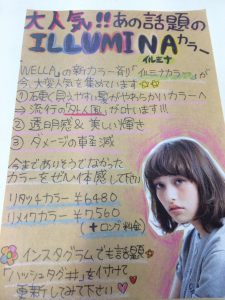 大人気!!あの話題の
ILLUMINAカラー
イルミナ
WELLAの新カラー剤「イルミナカラー」が
今、大変人気を集めています☆☆☆
①硬く見えやすい髪がやわらかいカラーへ
→流行の"外人風"が叶います!!!
②透明感&美しい輝き
③ダメージの軽減
今までありそうでなかった
カラーをぜひ体感して下さい
リタッチカラー ¥6480
リメイクカラー ¥7560
(+ロング料金)
インスタグラムでも話題☆
「ハッシュタグ#」を付けて
更新してみて下さい♡